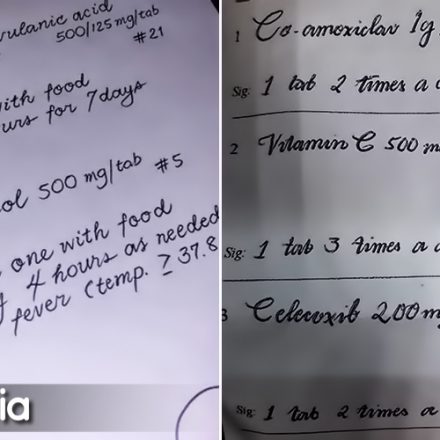 vulanic acid
500/125 mg/tab
#21
with food
urs for 7 days
ol 500 mg/tab
#5
one with food
4 hours as needed
fever (temp. ≥ 37.8
ia
1 Co-amoxiclav 1g
Sig: 1 tab 2 times a d
2 Vitamin C 500 m
Sig: 1 tab 3 times a d
3 Celecoxib 200 m
Sig: 1 tab 2 times a